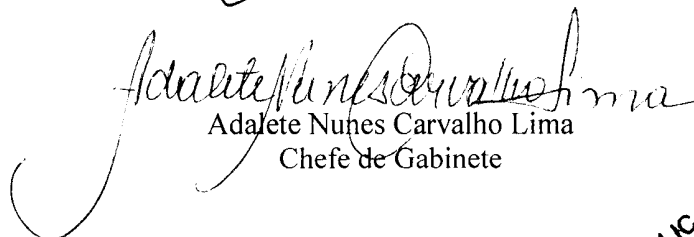 Adalete Nunes Carvalho Lima
Adalete Nunes Carvalho Lima
Chefe de Gabinete